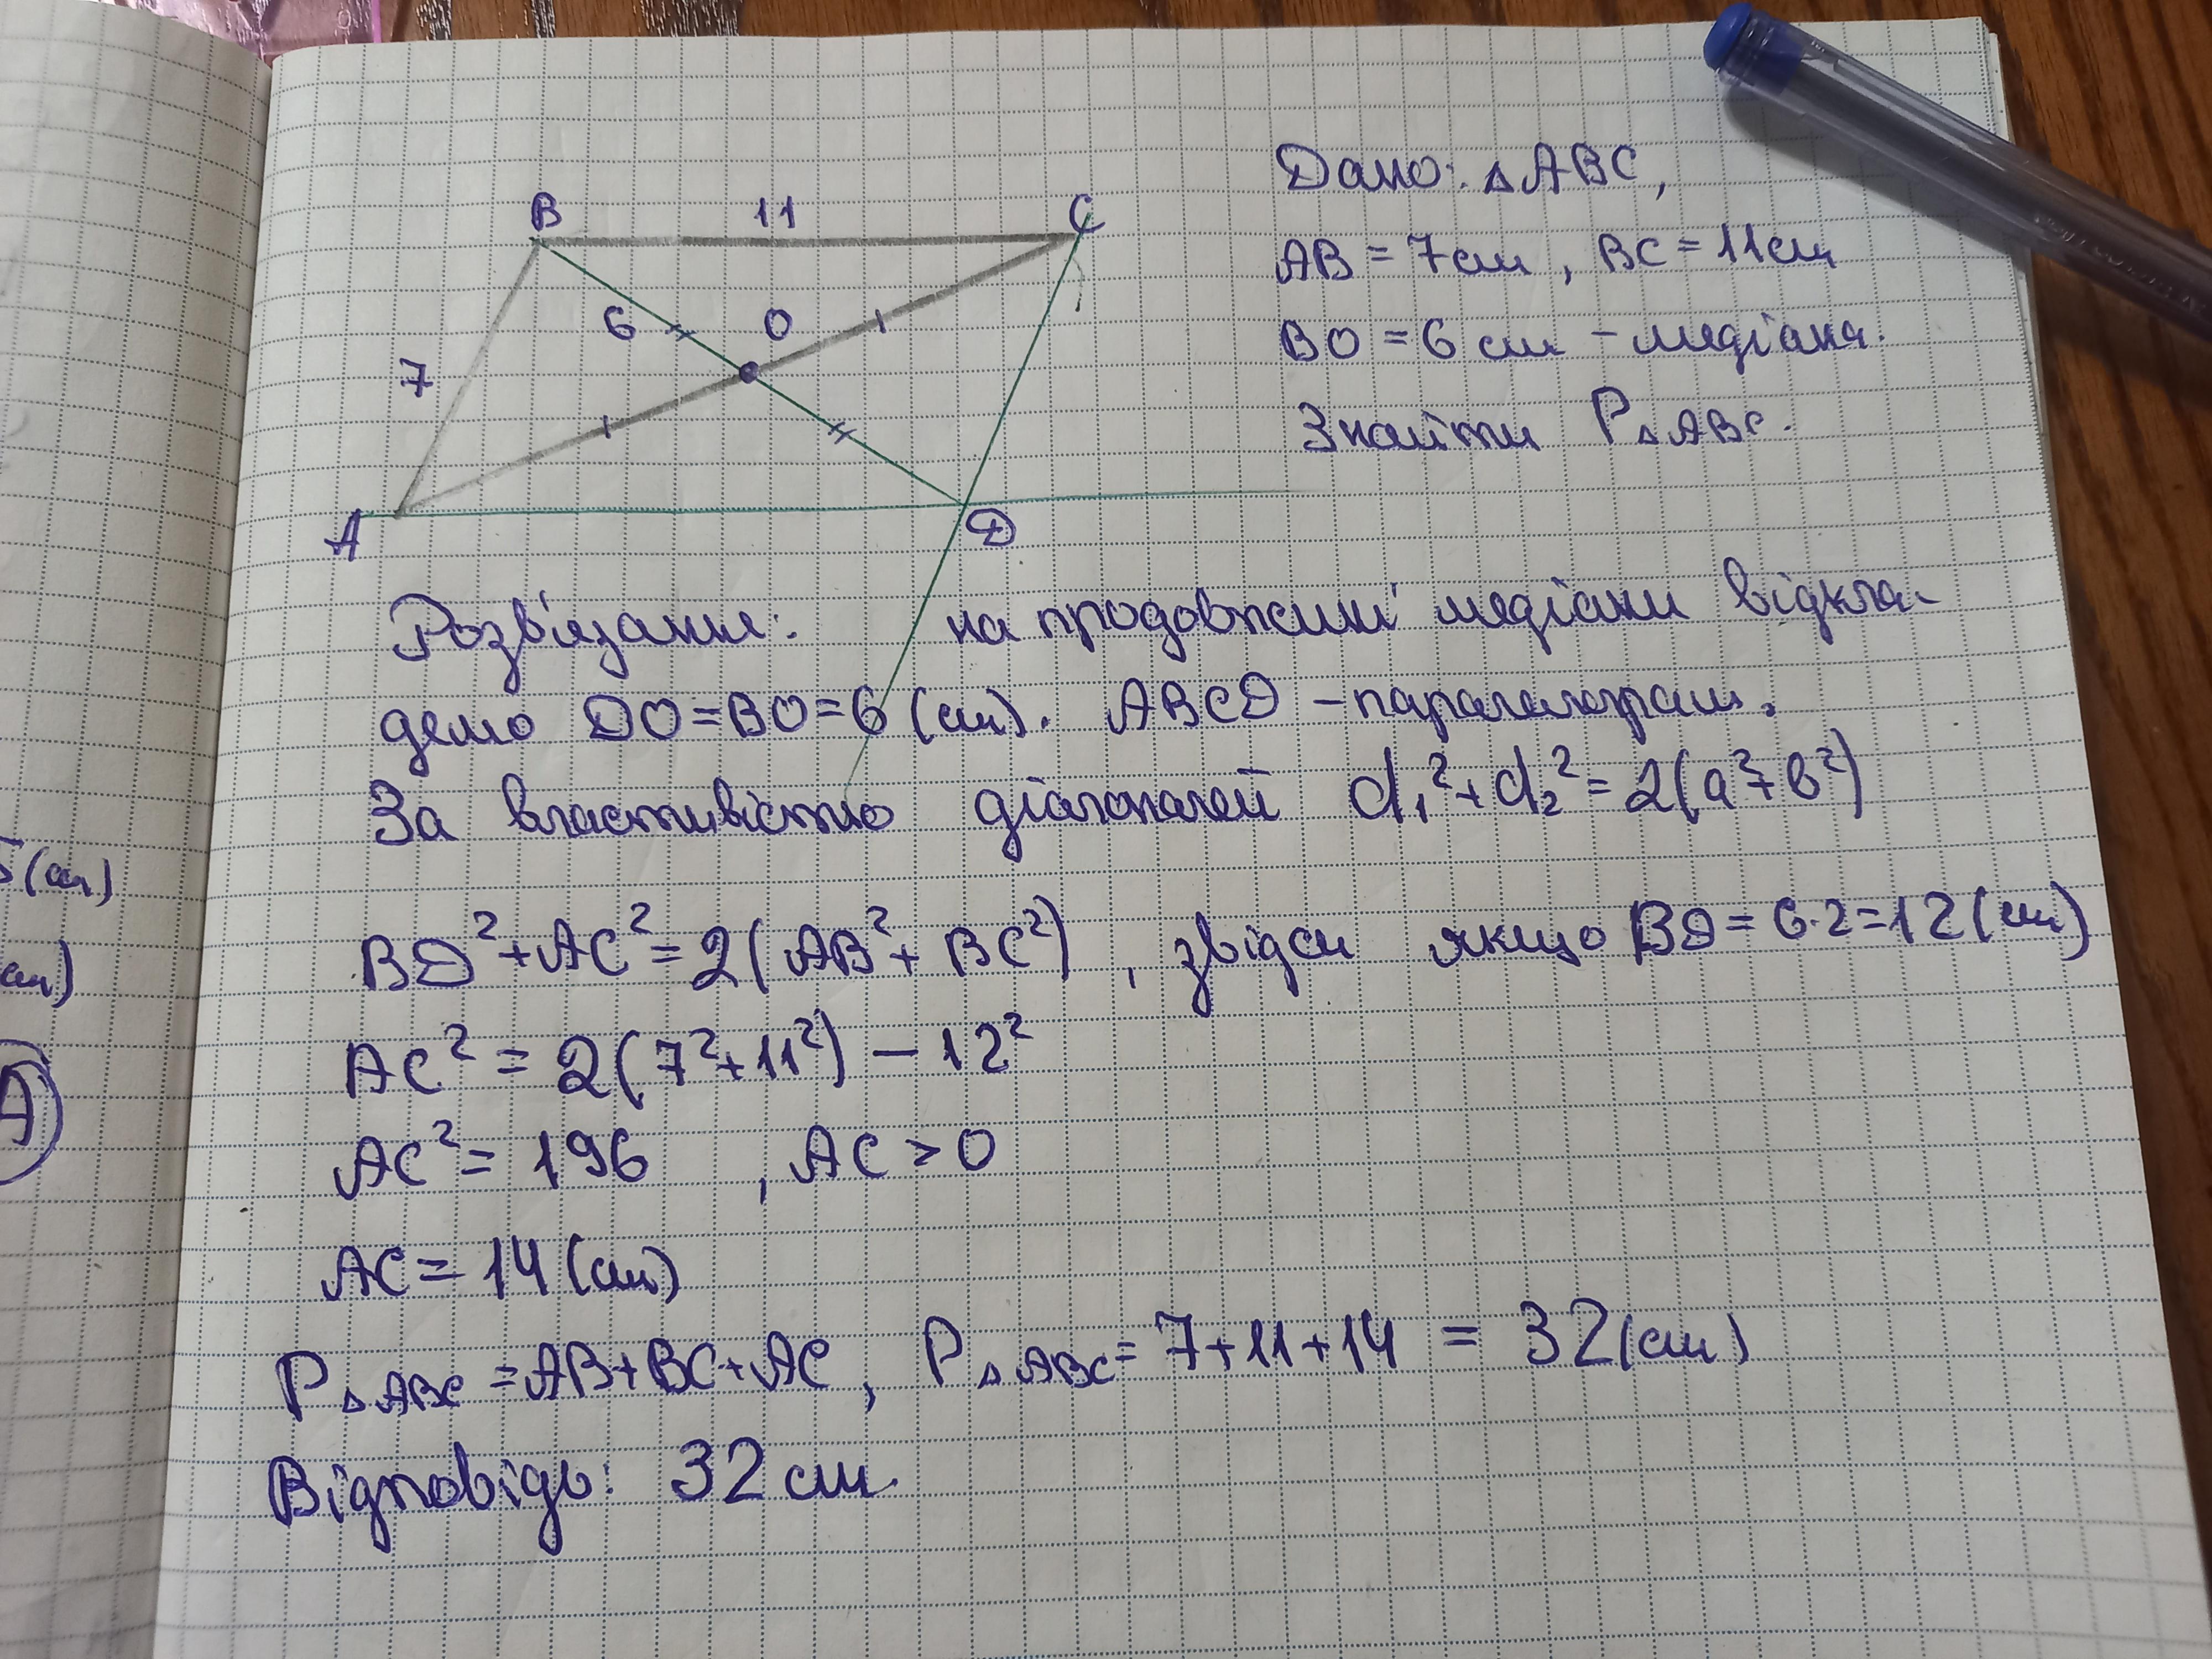 B 11 C
6 O
7
A D
Дано: △ABC,
AB = 7см, BC = 11см
BO = 6 см – медіана.
Знайти P△ABC.
Розв'язання: на продовжині медіани відкла-
демо DO=BO=6 (см). ABCD – паралелограм.
За властивістю діагоналей d₁²+d₂²=2(a²+b²)
BD²+AC²=2(AB²+BC²), звідси якщо BD=6·2=12(см)
AC²=2(7²+11²)–12²
AC²=196, AC>0
AC=14(см)
P△ABC=AB+BC+AC, P△ABC=7+11+14 = 32(см)
Відповідь: 32 см.
(см)
см)
A